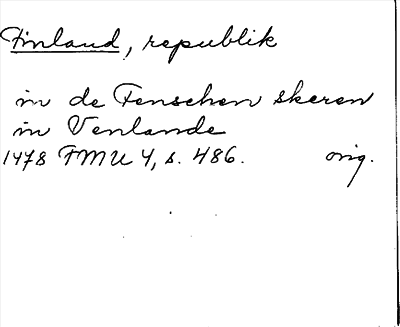 Finland, republik
in de Fenschen skeren
in Venlande
1478 FMU 4, s. 486. orig.